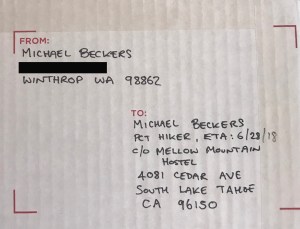 FROM:
MICHAEL BECKERS
WINTHROP WA 98862
TO:
MICHAEL BECKERS
PCT HIKER, ETA: 6/28/18
C/O MELLOW MOUNTAIN
HOSTEL
4081 CEDAR AVE
SOUTH LAKE TAHOE
CA 96150